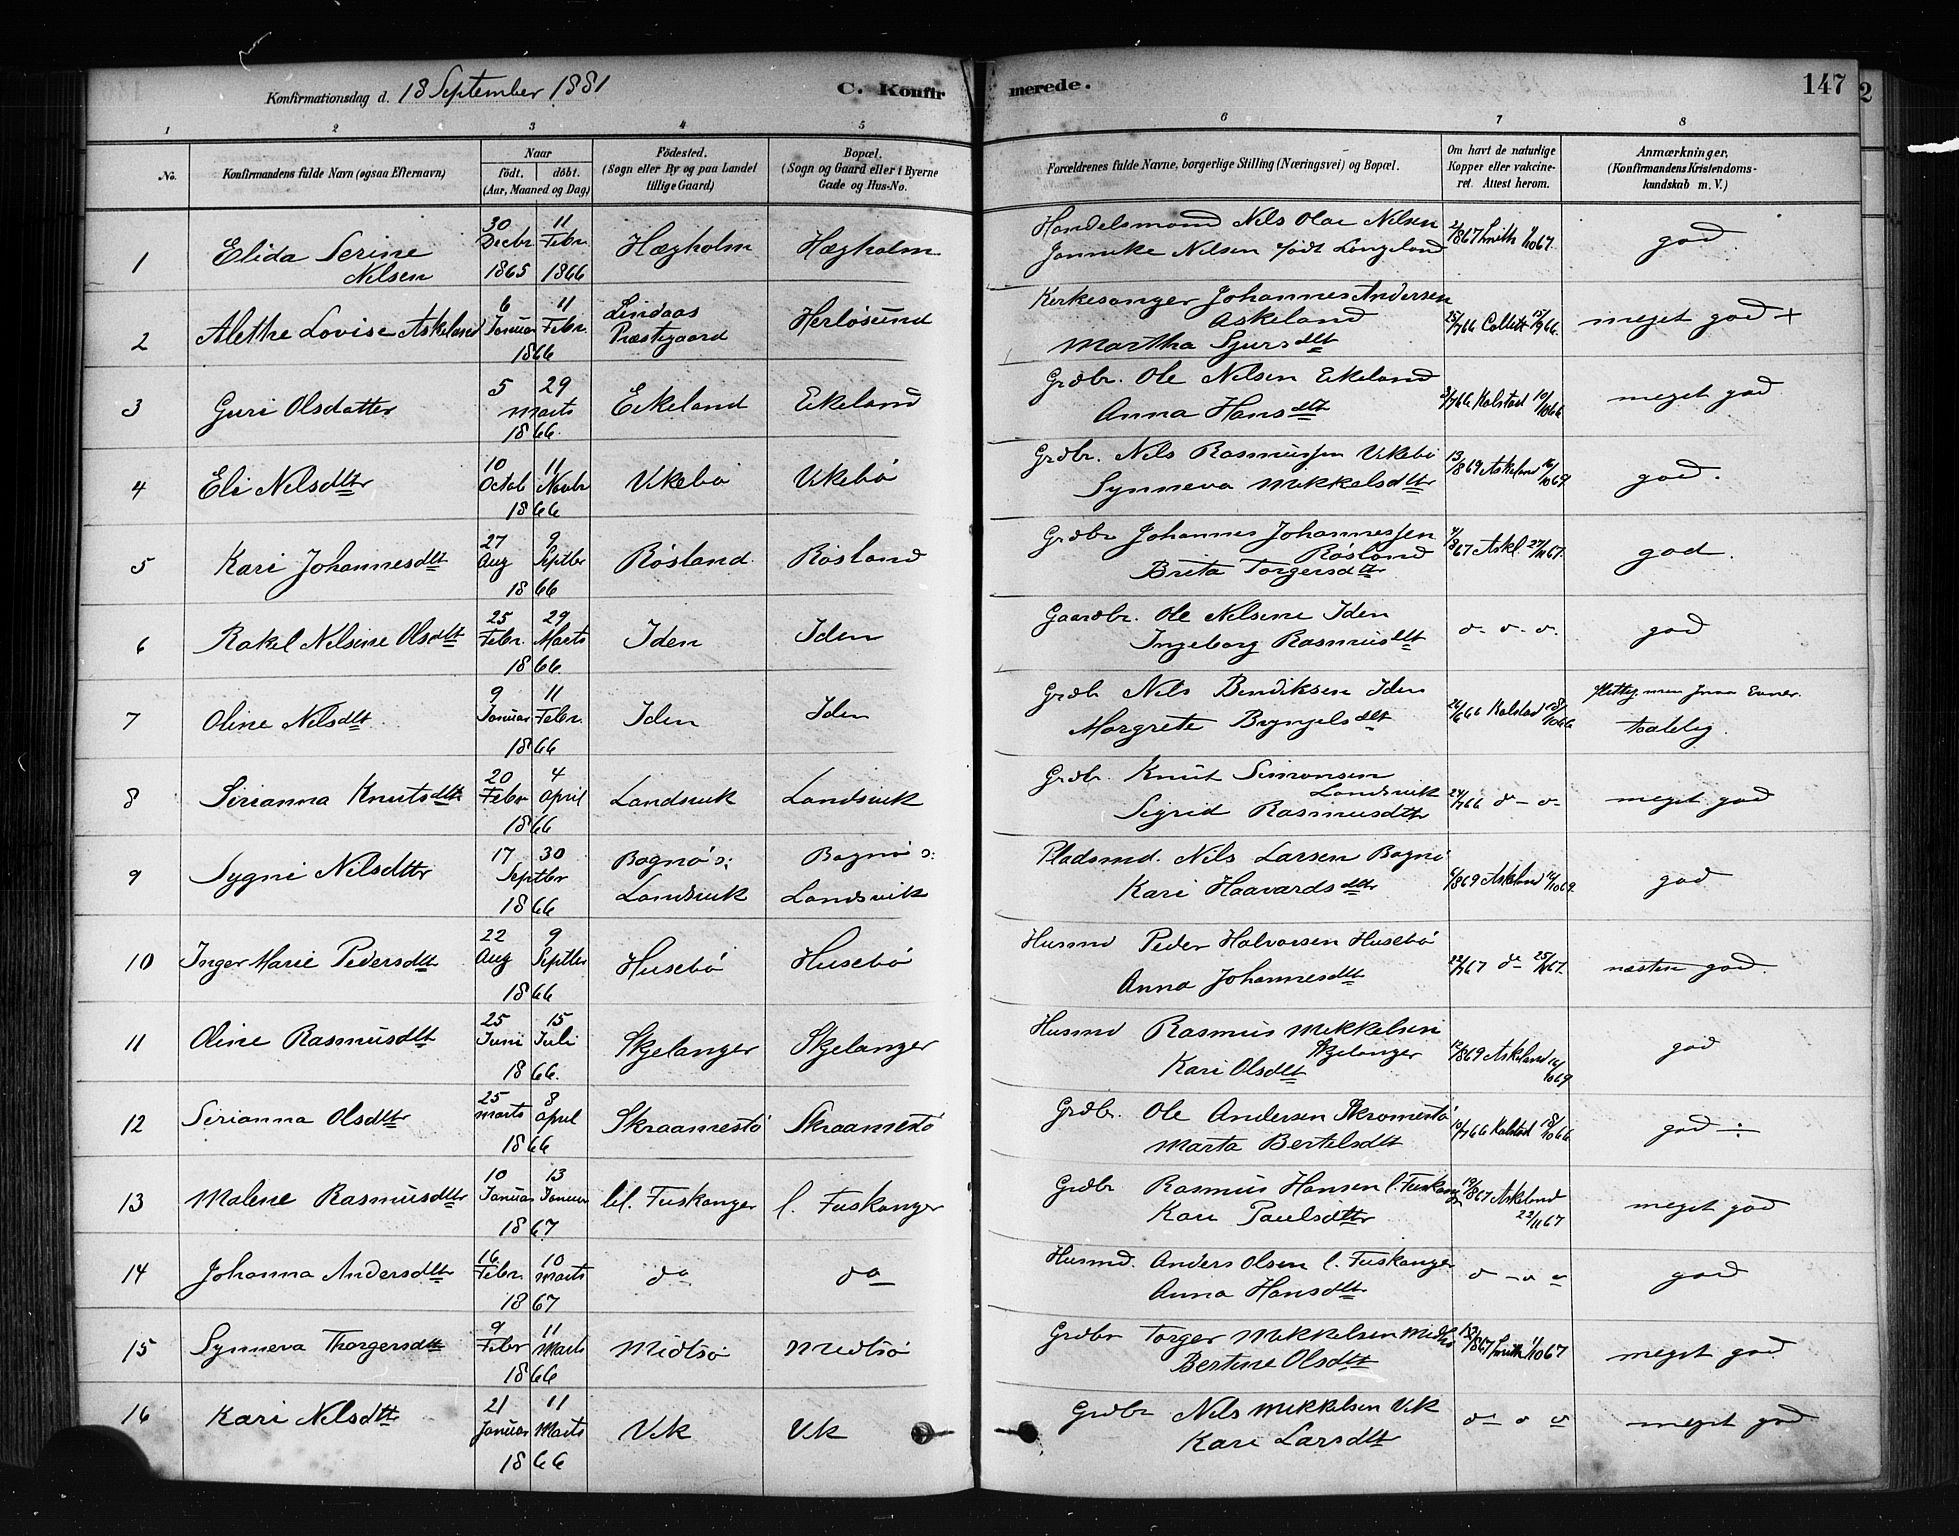 Konfirmationsdag d. 18 September 1881
C. Konfirmerede.
147
2
1 2 3 4 5 6 7 8
No.
Konfirmandens fulde Navn (ogsaa Efternavn)
Naar
født, døbt.
(Aar, Maaned og Dag)
Fødested.
(Sogn eller By og paa Landet
tillige Gaard)
Bopæl.
(Sogn og Gaard eller i Byerne
Gade og Hus-No.
Forældrenes fulde Navne, borgerlige Stilling (Næringsvei) og Bopæl.
Om havt de naturlige
Kopper eller vakcine-
ret. Attest herom.
Anmærkninger,
(Konfirmandens Kristendoms-
kundskab m. V.)
1 Elida Serine Nilsen
30 Decbr 1865 11 Febr. 1866
Hægholm Hægholm
Handelsmand Nils Olai Nilsen
Jannike Nilsen født Langeland
2/867 Smith 1/1067.
god.
2 Alethe Lovise Askeland
6 Januar 11 Febr. 1866
Lindaas Præstegaard
Herløsund
Kirkesanger Johannes Andersen
Askeland
Martha Sjursdtt
25/766 Collett 15/966.
meget god +
3 Guri Olsdatter
5 29 Marts 1866.
Eikeland Eikeland
Grdbr. Ole Nilsen Eikeland
Anna Hansdtt
2/766 Kalstad 10/1066
meget god
4 Eli Nilsdttr
10 Octob 11 Novbr 1866
Vikebø Vikebø
Grdbr. Nils Rasmussen Vikebø
Synneva Mikkelsdttr
13/869 Askeland 16/1069
god.
5 Kari Johannesdtt
27 Aug 9 Septbr 1866
Røsland. Røsland
Grdbr Johannes Johannessen
Røsland
Brita Torgersdttr
9/867 Askl. 27/1167.
god.
6 Rakel Nilsine Olsdtt
25 Febr. 29 Marts 1866.
Iden Iden
Gaardbr. Ole Nilsene Iden
Ingeborg Rasmusdtt
o- o- o-
god
7 Oline Nilsdtt.
9 Januar 11 Febr. 1866
Iden Iden
Grdb Nils Bendiksen Iden
Margrete Brynjelsdtt
26/666 Kalstad 18/1066
flittig, men smaa Evner.
taalelig.
8 Serianna Knutsdtt
20 Febr 4 April 1866
Landsvik Landsvik
Grdbr. Knut Simonsen
Landsvik
Sigrid Rasmusdttr
24/766 o- o-
meget god
9 Sygni Nilsdttr
17 30 Septbr 1866
Bognø o: Landsvik
Bognø o: Landsvik
Pladsmd. Nils Larsen Bognø
Kari Haavardsdttr
9/869 Askeland 16/1069.
god
10 Inger Marie Pedersdtt
22 Aug 9 Septbr 1866
Husebø Husebø
Husmd Peder Halvorsen Husebø
Anna Johannesdtt
22/767 o- 25/1167.
næsten god.
11 Oline Rasmusdtt
25 Juni 15 Juli 1866.
Skjelanger Skjelanger
Husmd Rasmus Mikkelsen
Skjelanger
Kari Olsdtt
12/869 Askeland 16/1069
god
12 Serianna Olsdttr
25 Marts 8 April 1866
Skraamestø Skraamestø
Grdbr. Ole Andersen Skromestø
Marta Bertelsdtt
10/766 Kalstad 18/1066
god ÷
13 Malene Rasmusdttr
10 Januar 13 Januar 1867
lil. Fuskanger l. Fuskanger
Grdbr Rasmus Hansen l. Fuskanger
Kari Paulsdttr
19/867 Askeland
22/1167
meget god
14 Johanna Andersdttr
16. Febr. 10 Marts 1867
do do
Husmd. Anders Olsen l. Fuskanger
Anna Hansdttr
o - o o
god
15 Synneva Thorgersdtt
9 Febr 11 Marts 1866
Midtsø Midtsø
Grdbr Torger Mikkelsen Midtsø
Bertine Olsdtt
13/867 Smith 1/1067
meget god
16 Kari Nilsdtt
21 Januar 11 Marts 1866
Vik Vik
Grdbr Nils Mikkelsen Vik
Kari Larsdtt
o- o o
meget god